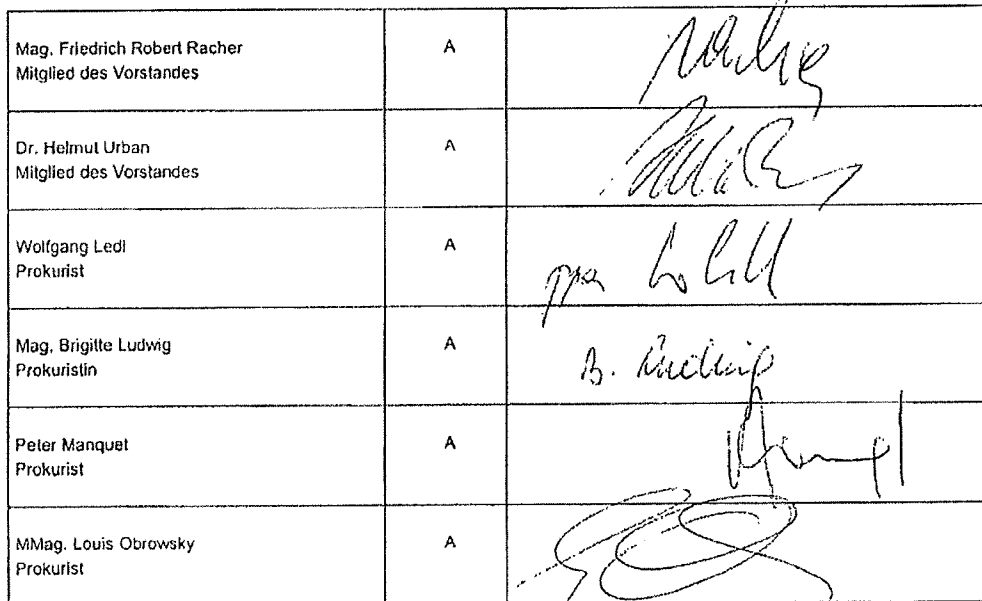 Mag. Friedrich Robert Racher
Mitglied des Vorstandes
A
Dr. Helmut Urban
Mitglied des Vorstandes
A
Wolfgang Ledl
Prokurist
A
ppa
Mag. Brigitte Ludwig
Prokuristin
A
B. Ludwig
Peter Manquet
Prokurist
A
MMag. Louis Obrowsky
Prokurist
A